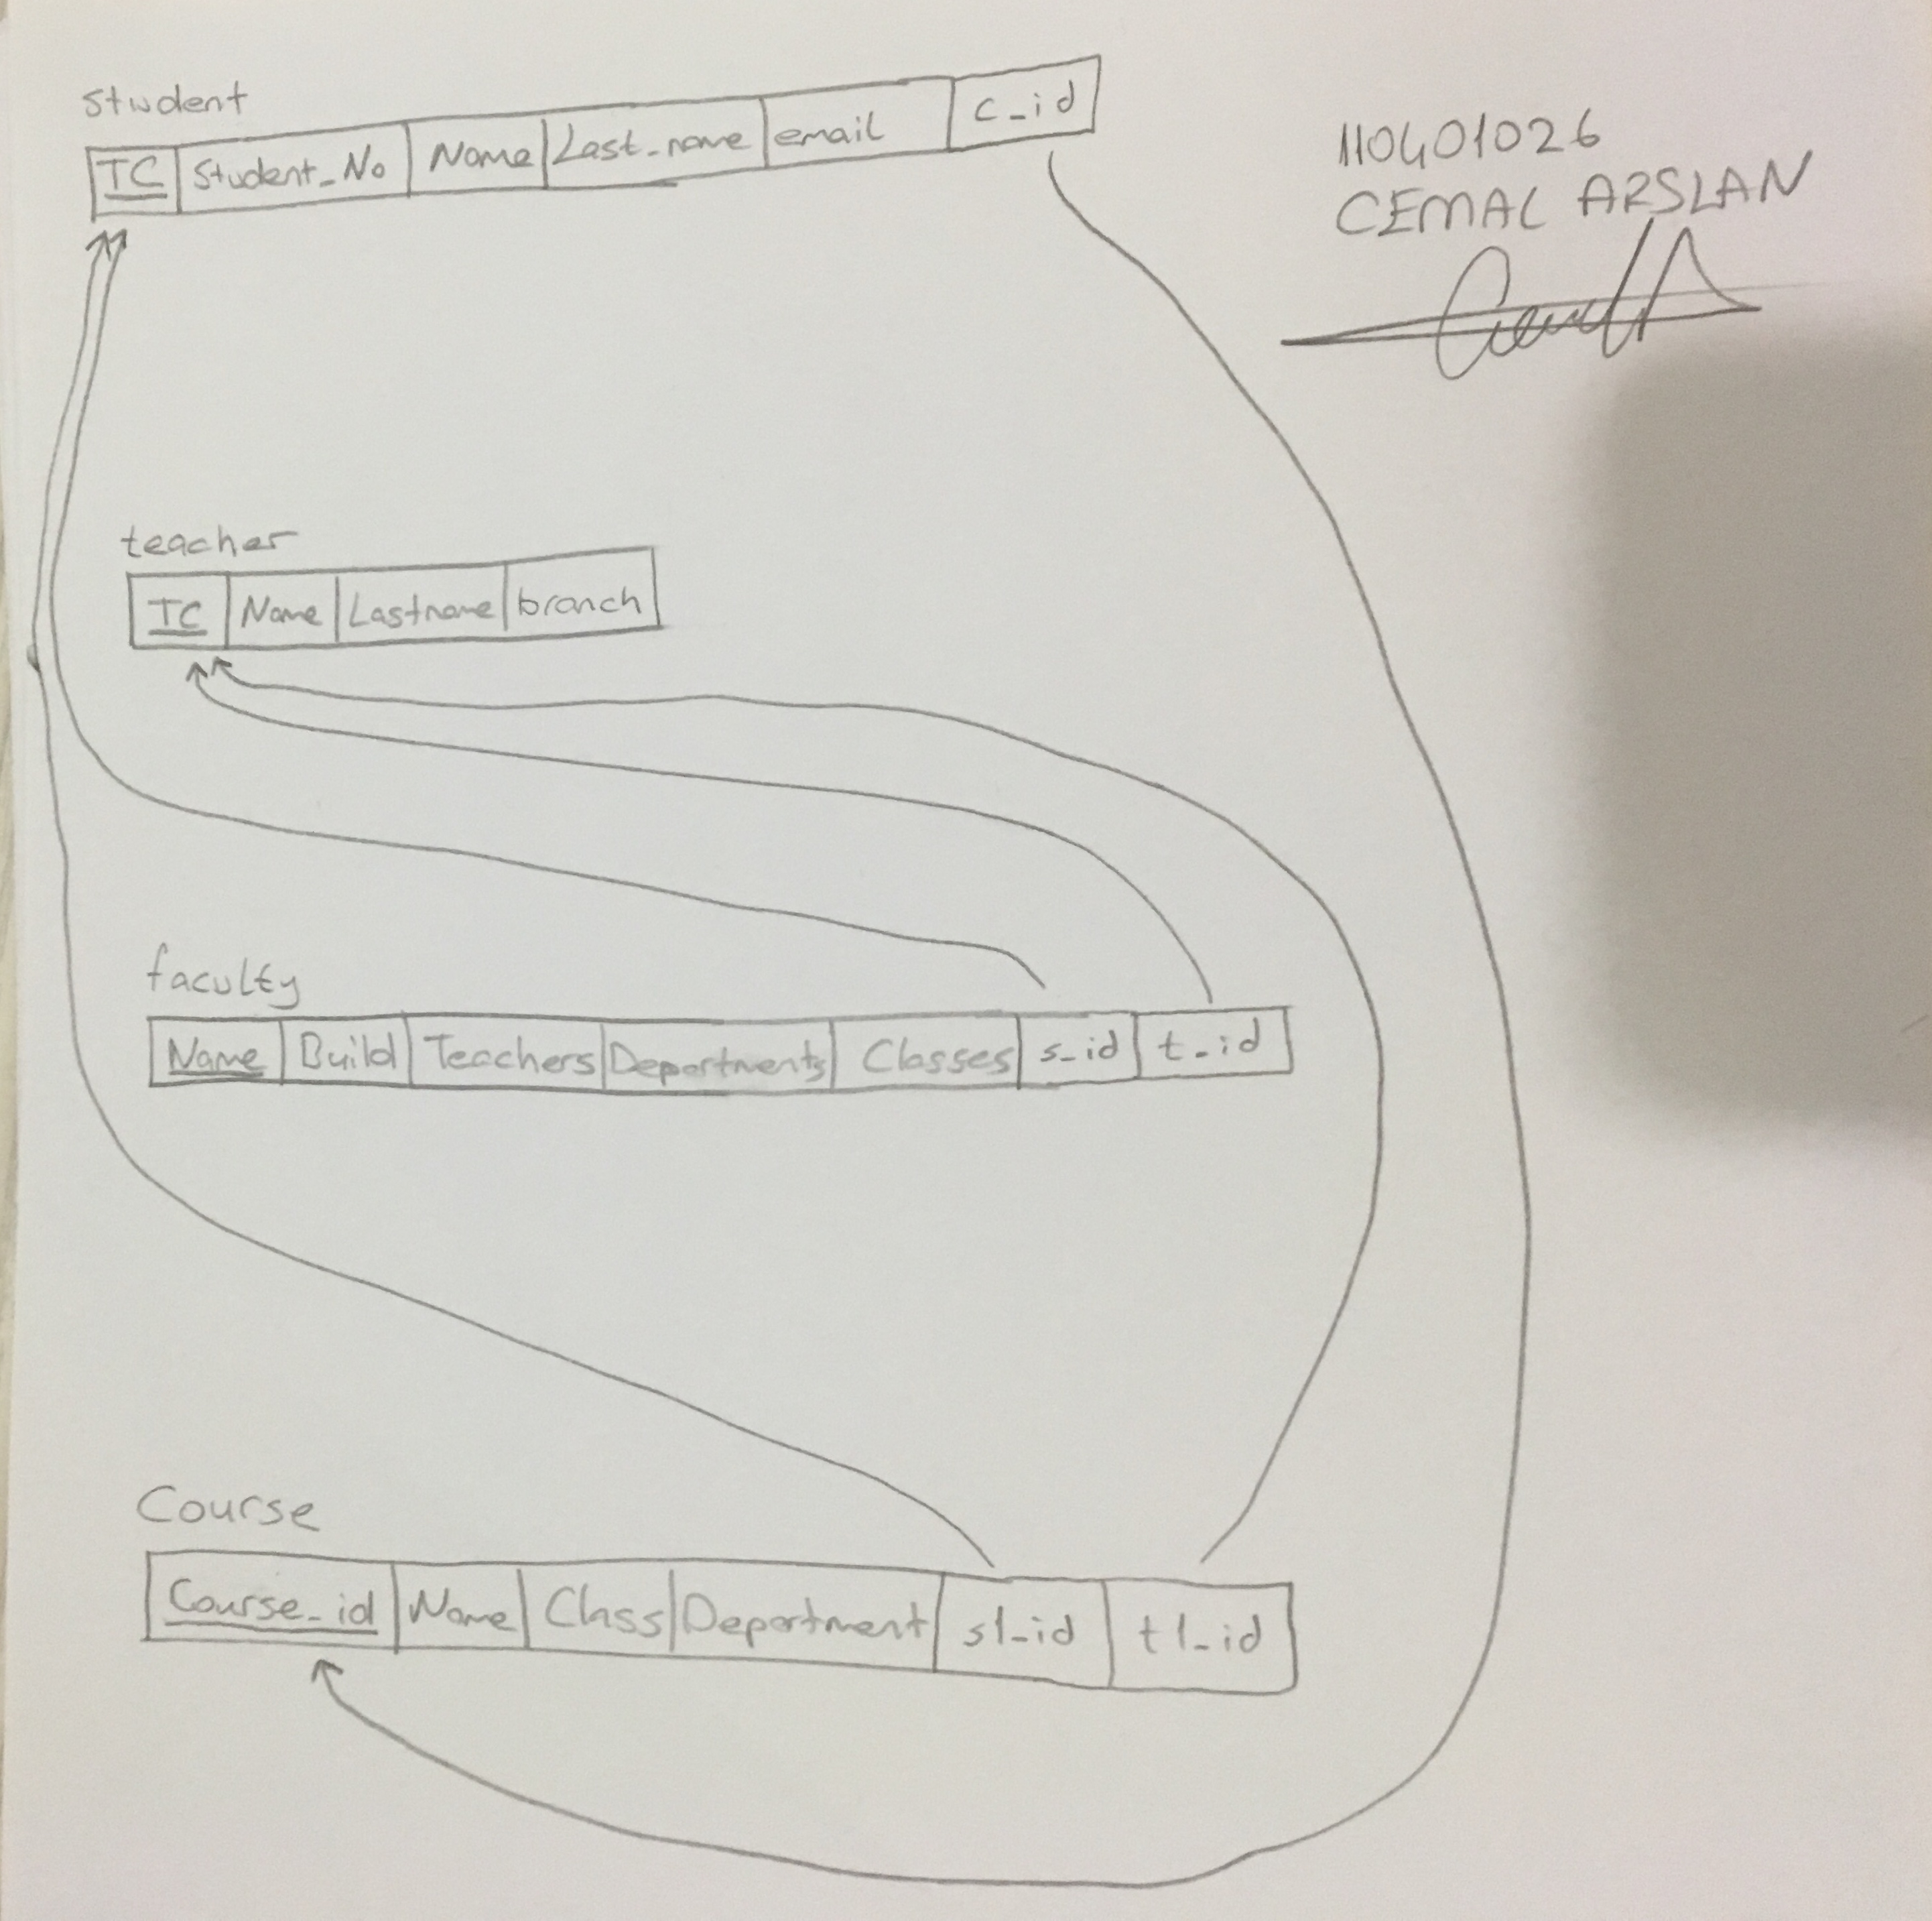 student
TC Student_No Name Last_name email c_id
110401026
CEMAL ARSLAN
teacher
TC Name Lastname branch
faculty
Name Build Teachers Departments Classes s_id t_id
Course
Course_id Name Class Department s1_id t1_id